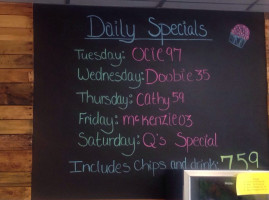 Daily Specials
Tuesday: Ocie97
Wednesday: Doobie35
Thursday: Cathy59
Friday: mckenzie03
Saturday: Q's Special
Includes Chips and drink: 7.59